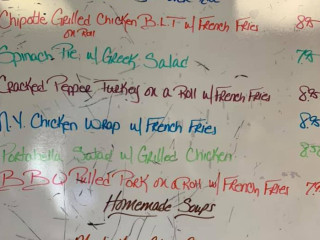 Chipotle Grilled Chicken B.L.T w/ French Fries 8
on Roll
Spinach Pie w/ Greek Salad 7
Cracked Pepper Turkey on a Roll w/ French Fries 8
N.Y. Chicken Wrap w/ French Fries 8
Portabella Salad w/ Grilled Chicken 8
BBQ Pulled Pork on a Roll w/ French Fries 7
Homemade Soups